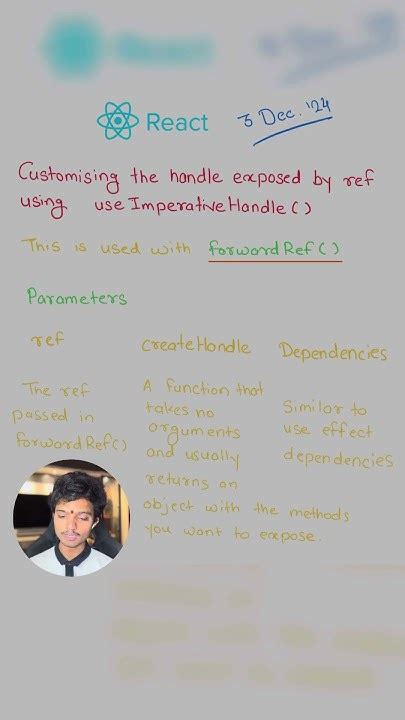 React
3 Dec. '24
Customising the handle exposed by ref
using useImperativeHandle()
This is used with forwardRef()
Parameters
ref
createHandle
Dependencies
The ref
passed in
forwardRef()
A function that
takes no
arguments
and usually
returns an
object with the methods
you want to expose.
Similar to
use effect
dependencies